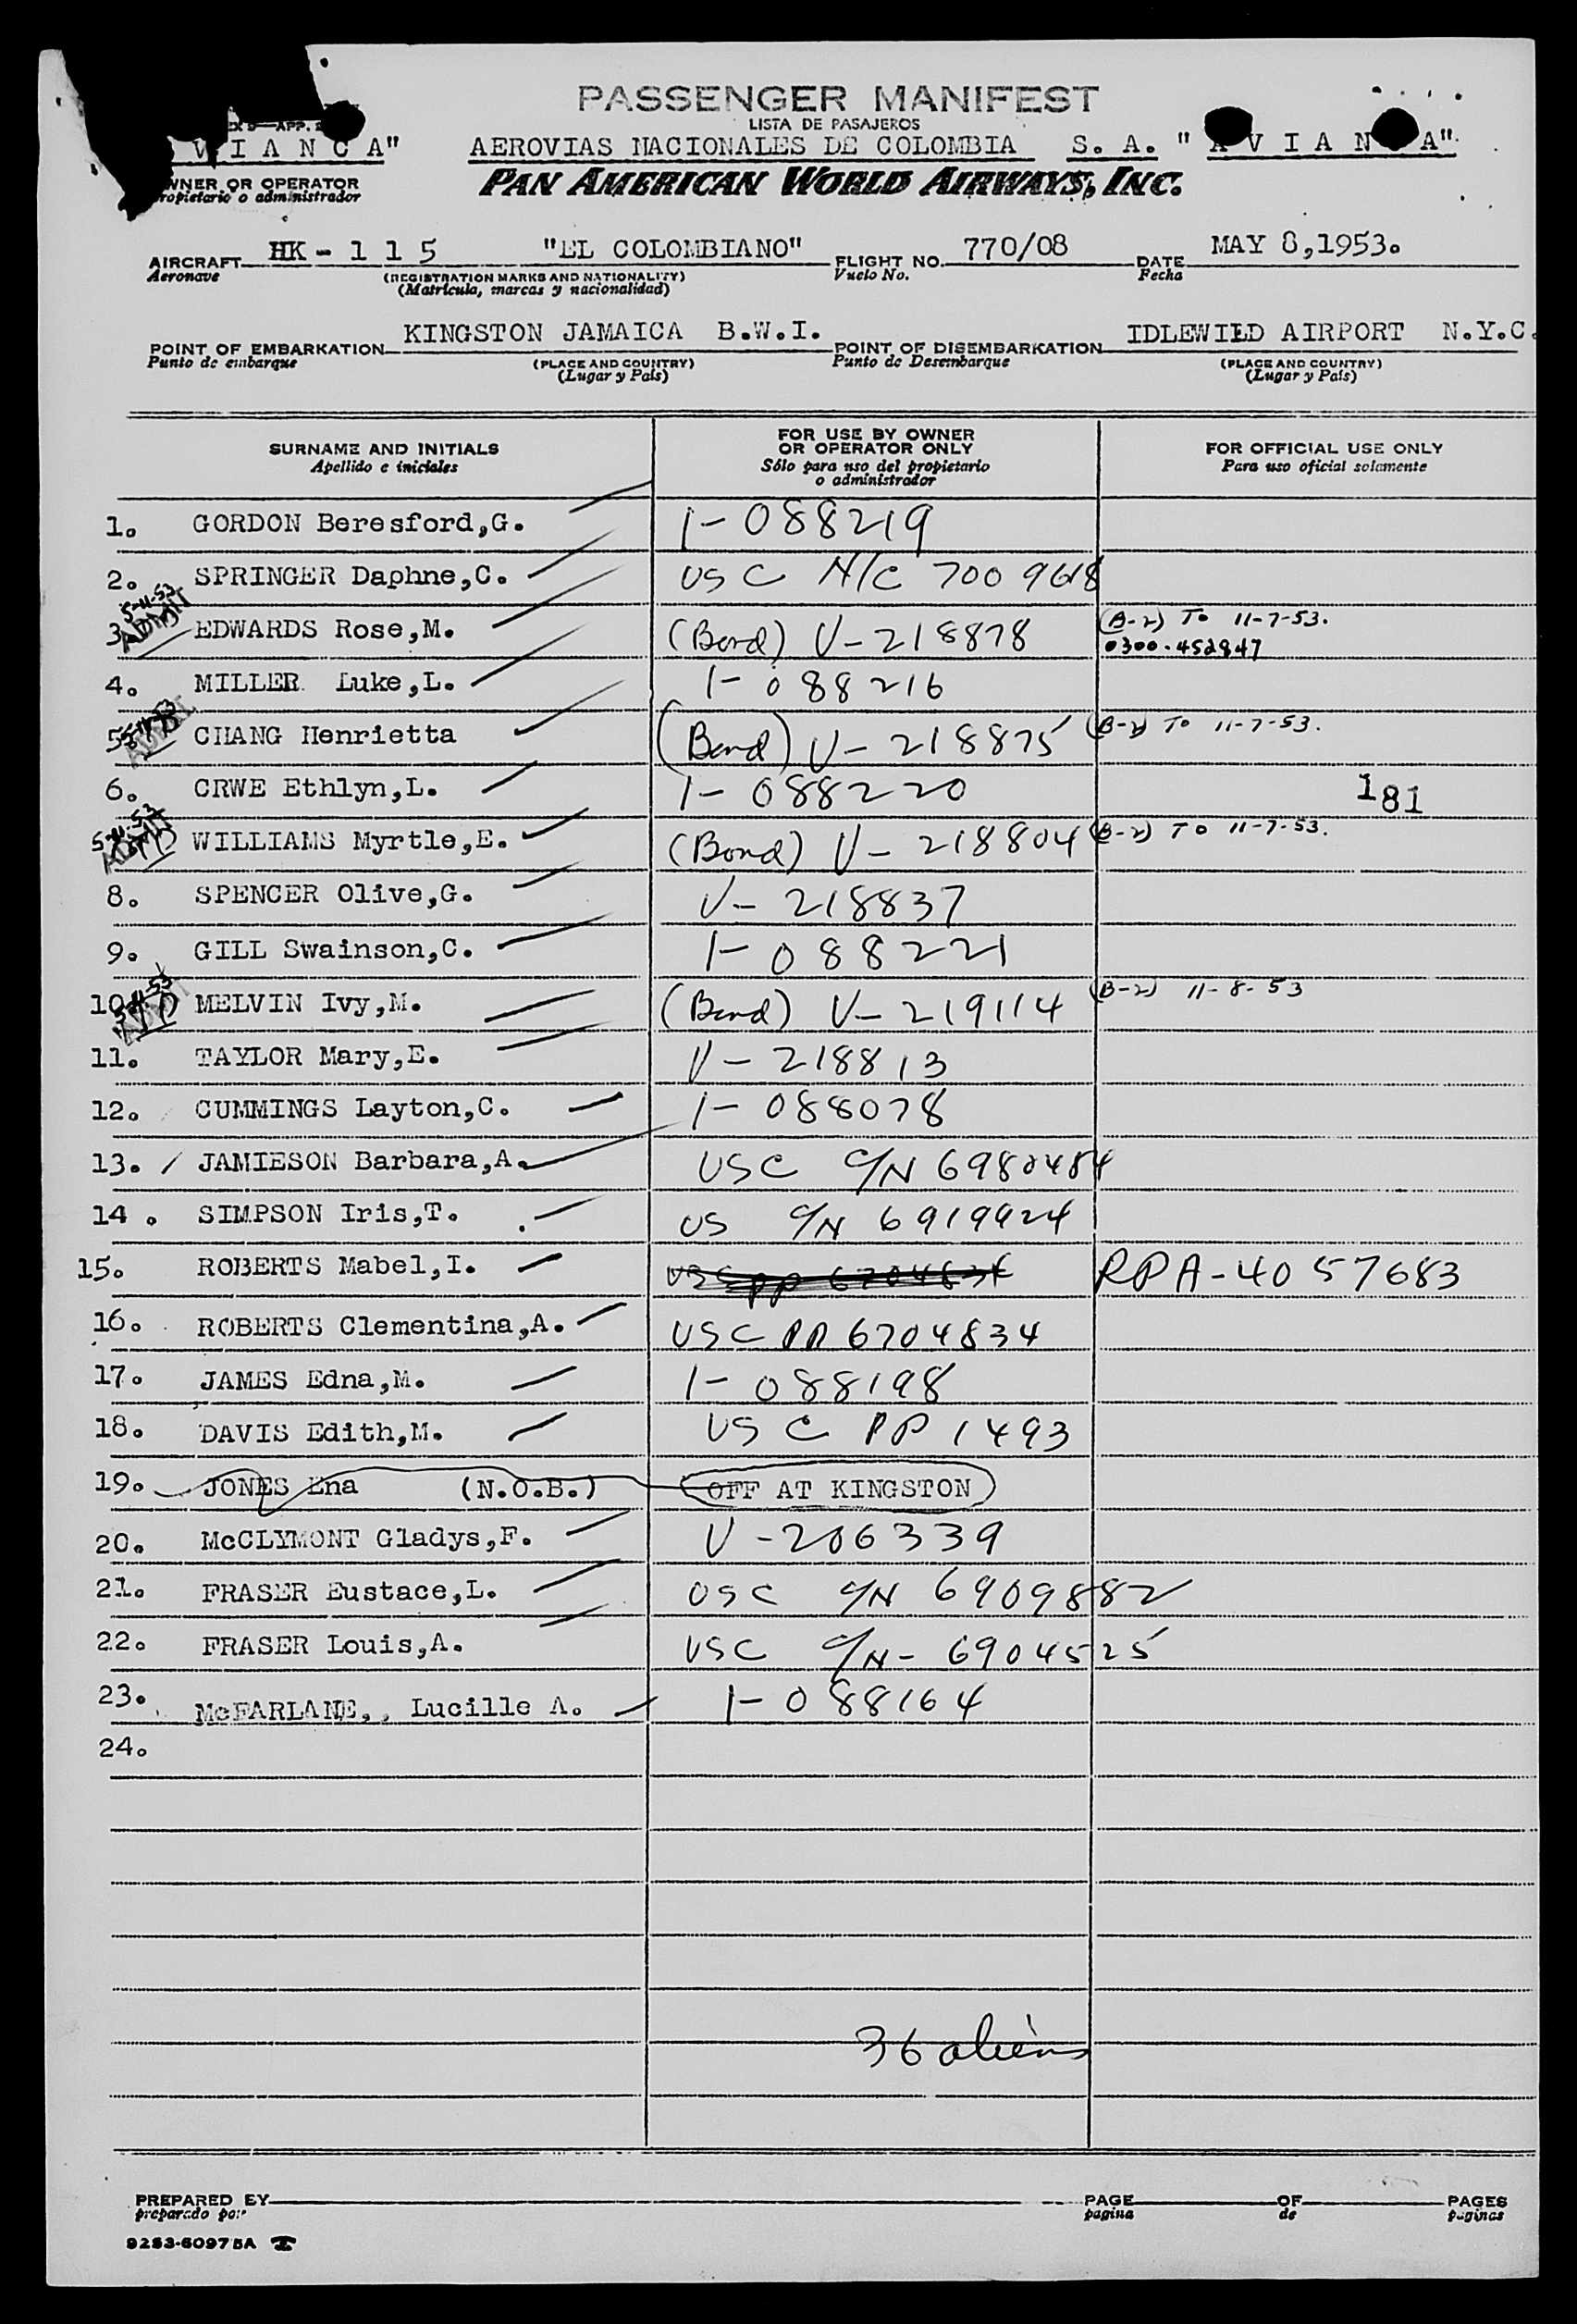 PASSENGER MANIFEST
LISTA DE PASAJEROS
VIANCA" AEROVIAS NACIONALES DE COLOMBIA S. A. "AVIANCA"
PAN AMERICAN WORLD AIRWAYS, INC.
WNER OR OPERATOR
propietario o administrador
AIRCRAFT HK-115 "EL COLOMBIANO" FLIGHT NO. 770/08 DATE MAY 8,1953.
Aeronave (REGISTRATION MARKS AND NATIONALITY) Vuelo No. Fecha
(Matrícula, marcas y nacionalidad)
POINT OF EMBARKATION KINGSTON JAMAICA B.W.I. POINT OF DISEMBARKATION IDLEWILD AIRPORT N.Y.C.
Punto de embarque (PLACE AND COUNTRY) Punto de Desembarque (PLACE AND COUNTRY)
(Lugar y País) (Lugar y País)
SURNAME AND INITIALS FOR USE BY OWNER OR OPERATOR ONLY FOR OFFICIAL USE ONLY
Apellido e iniciales Sólo para uso del propietario o administrador Para uso oficial solamente
1. GORDON Beresford,G. 1-088219
2. SPRINGER Daphne,C. USC N/C 700 9618
5-11-53 ADMIT
3. EDWARDS Rose,M. (Bond) V-218878 (B-2) To 11-7-53.
0300-452947
4. MILLER Luke,L. 1-088216
5. CHANG Henrietta (Bond) V-218875 (B-2) To 11-7-53.
6. CRWE Ethlyn,L. 1-088220 181
5-11-53 ADMIT
WILLIAMS Myrtle,E. (Bond) V-218804 (B-2) To 11-7-53.
8. SPENCER Olive,G. V-218837
9. GILL Swainson,C. 1-088221
10. MELVIN Ivy,M. (Bond) V-219114 (B-2) 11-8-53
11. TAYLOR Mary,E. V-218813
12. CUMMINGS Layton,C. 1-088078
13. JAMIESON Barbara,A. USC C/N 6980484
14. SIMPSON Iris,T. US C/N 6919924
15. ROBERTS Mabel,I. USC PP 6704834 RPA-4057683
16. ROBERTS Clementina,A. USC PP 6704834
17. JAMES Edna,M. 1-088198
18. DAVIS Edith,M. USC PP 1493
19. JONES Ena (N.O.B.) OFF AT KINGSTON
20. McCLYMONT Gladys,F. V-206339
21. FRASER Eustace,L. USC C/N 6909882
22. FRASER Louis,A. USC C/N-6904525
23. McFARLANE,, Lucille A. 1-088164
24.
36 aliens
PREPARED BY PAGE OF PAGES
preparado por pagina de paginas
9283-60975A